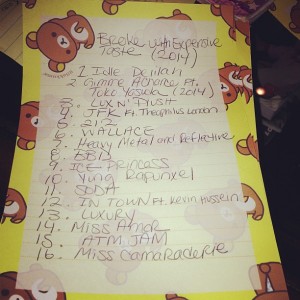 Broke with Expensive
Taste
(2014)
1. Idle Delilah
2. Gimme A Chance Ft.
Yoko Yasuka (2014)
3. LUX N' PlUSH
4. JFK Ft. Theophilus London
5. 212
6. WALLACE
7. Heavy Metal and Reflective
8. BBD
9. ICE Princess
10. Yung Rapunxel
11. SODA
12. IN TOWN Ft. Kevin Hussein
13. LUXURY
14. Miss Amor
15. ATM JAM
16. Miss Camaraderie